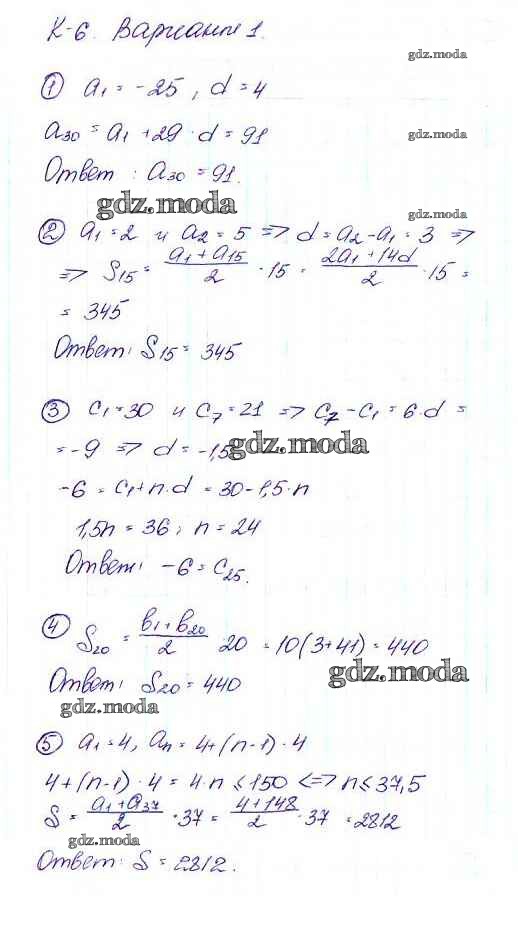 К-6. Вариант 1.
gdz.moda
① a₁ = -25, d = 4
a₃₀ = a₁ + 29 · d = 91
gdz.moda
Ответ: a₃₀ = 91.
gdz.moda
② a₁ = 2 и a₂ = 5 => d = a₂ - a₁ = 3 =>
=> S₁₅ = (a₁ + a₁₅)/2 · 15 = (2a₁ + 14d)/2 · 15 =
= 345
Ответ: S₁₅ = 345
③ c₁ = 30 и c₇ = 21 => c₇ - c₁ = 6·d =
= -9 => d = -1,5
gdz.moda
-6 = c₁ + n·d = 30 - 1,5·n
1,5n = 36; n = 24
Ответ: -6 = c₂₅.
④ S₂₀ = (b₁ + b₂₀)/2 · 20 = 10(3+41) = 440
gdz.moda
Ответ: S₂₀ = 440
gdz.moda
⑤ a₁ = 4, aₙ = 4 + (n-1) · 4
4 + (n-1) · 4 = 4·n ≤ 150 <=> n ≤ 37,5
S = (a₁ + a₃₇)/2 · 37 = (4 + 148)/2 · 37 = 2812
gdz.moda
Ответ: S = 2812.